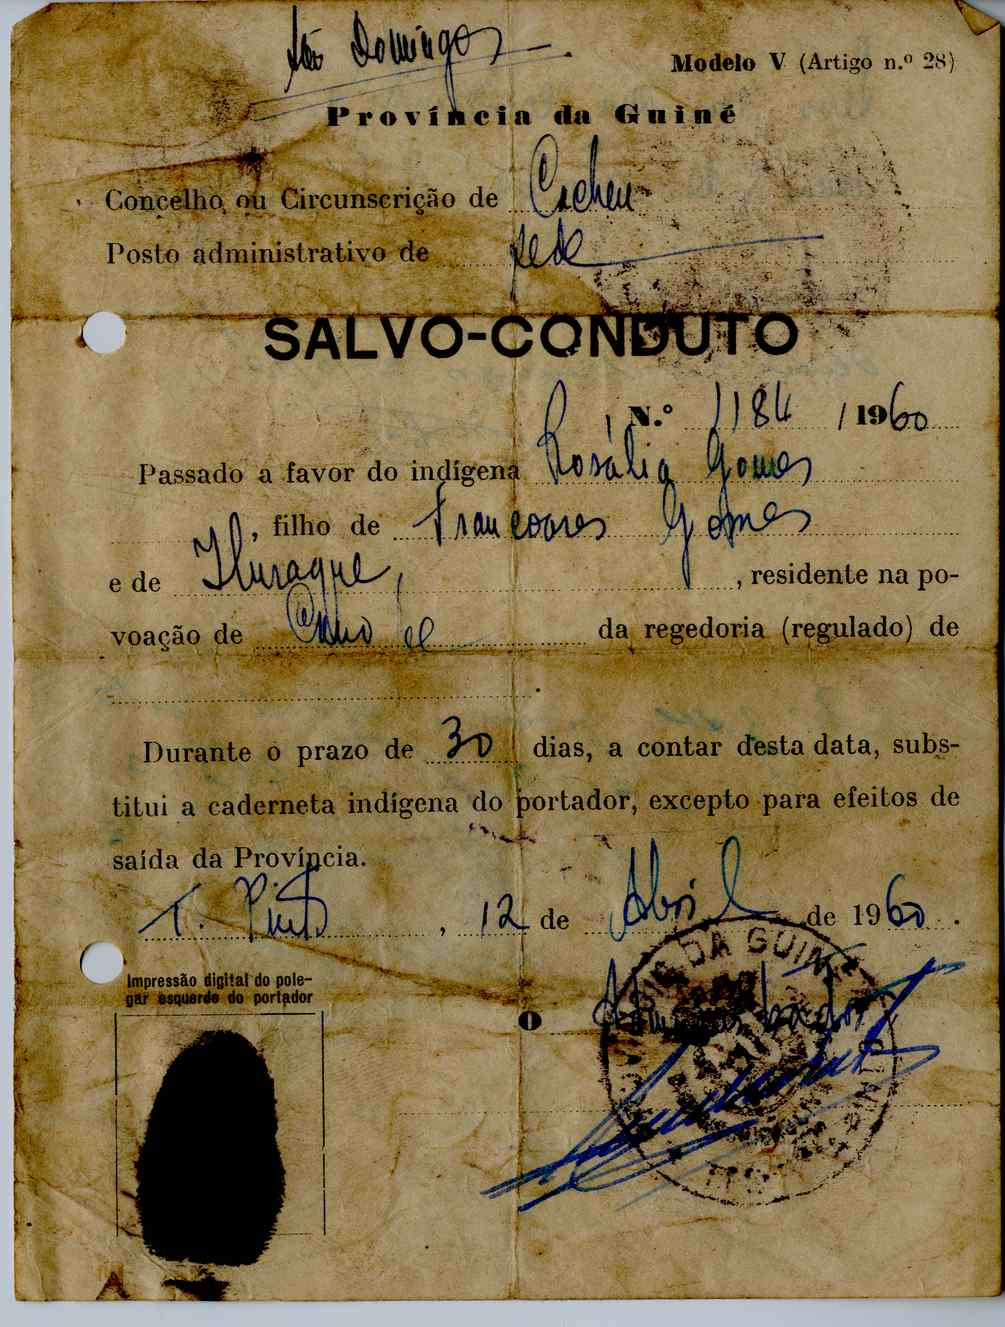 São Domingos
Modelo V (Artigo n.º 28)
Província da Guiné
Concelho ou Circunscrição de Cacheu
Posto administrativo de sede
SALVO-CONDUTO
N.º 1184 / 1960
Passado a favor do indígena Rosália Gomes
, filho de Gomes
e de , residente na po-
voação de da regedoria (regulado) de
.
Durante o prazo de 30 dias, a contar desta data, subs-
titui a caderneta indígena do portador, excepto para efeitos de
saída da Província.
T. Pinto, 12 de Abril de 1960.
Impressão digital do pole-
gar esquerdo do portador
O Administrador
DA GUINÉ